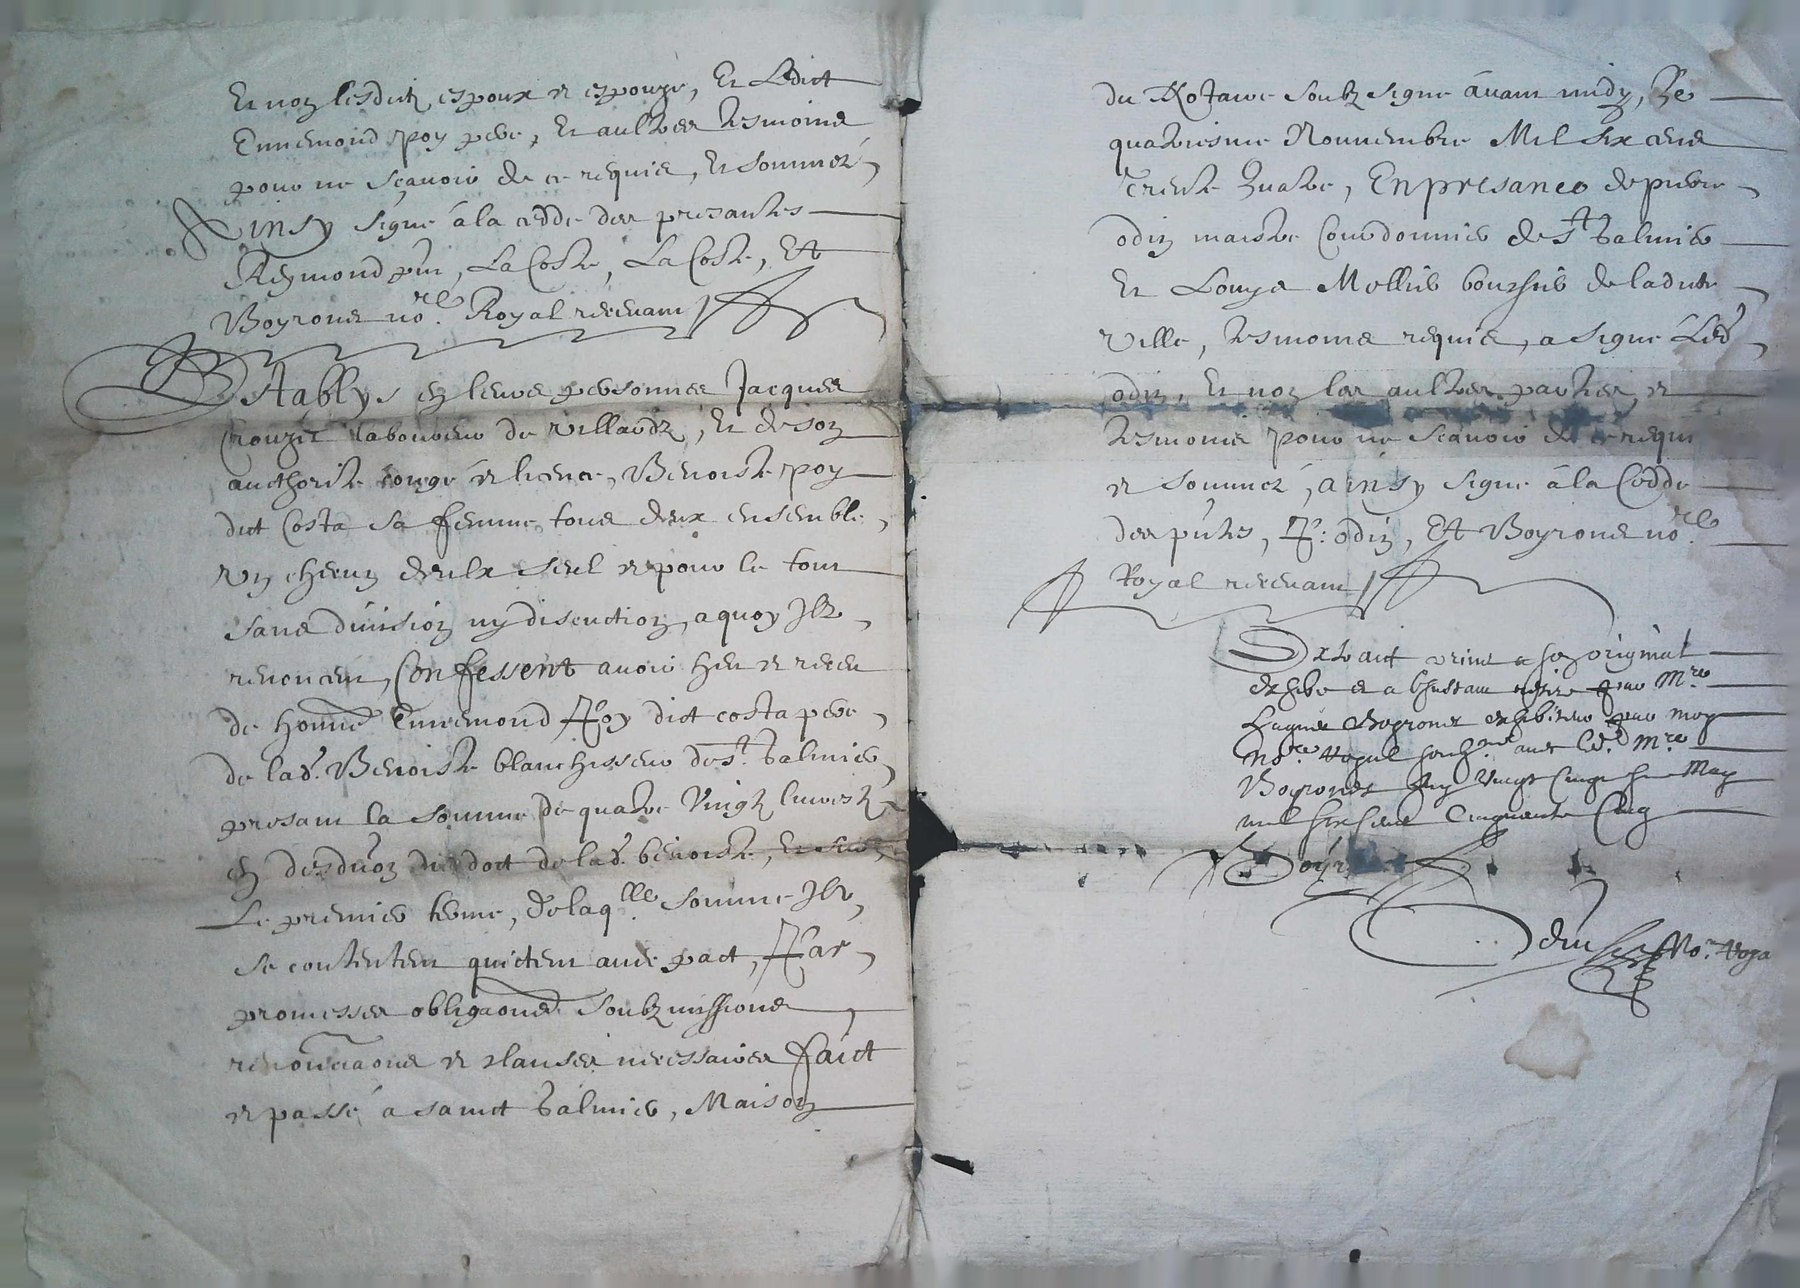 Et non lesdictz espoux et espouze, Et Ledict
Ennemond poy pere, Et aultres tesmoins
pour ne sçavoir de ce requis, Et sommez,
Ainsy signé à la cedde des presantes
Reymond pnt, LaCoste, LaCoste, Et
Boyrond no.re Royal recevant
Establys en leurs personnes Jacques
Crouzet laboureur de Villardz, Et de son
authorite congé et licence, Benoiste poy
dict Costa sa femme tous deux ensemble,
Un checun deulx seul et pour le tout
sans division ny discution, a quoy Ilz,
renoncent, Confessent avoir heu et receu
de honne Ennemond Poy dict costa pere,
de lad. Benoiste blanchisseur de St. Galmier,
presant la somme de quatre Vingtz livres tz,
En desduon du dot de lad. benoiste, Et sur
Le premier terme, de laq.lle somme Ilz,
se contentent quictent avec pact, Par,
promesses obligaons soubzmissions,
renonciaons et clauses necessaires faict
et passé à sainct Galmier, Maison
du Notaire soubz signé avant midy, Le
quatriesme Novembre Mil six cens
Trente Quatre, En presance de pierre,
odin maistre Courdonnier de St Galmier
Et Louys Mellier boursier de ladicte,
Ville, tesmoins requis, a signé Led.,
odin, Et non les aultres parties, et
tesmoins pour ne sçavoir de ce requis
et sommez, ainsy signé à la Cedde
des pntes, P: odin, Et Boyrond no.re
Royal recevant
Extraict prins a son original
exhibé et a l'instant retiré par Mre
Boyrond exhibiteur par moy
No.re Royal soubz.né avec led. Mre
Boyrond le Vingt Cinq May
mil six cens Cinquante Cinq
Boyr
No.re Roya